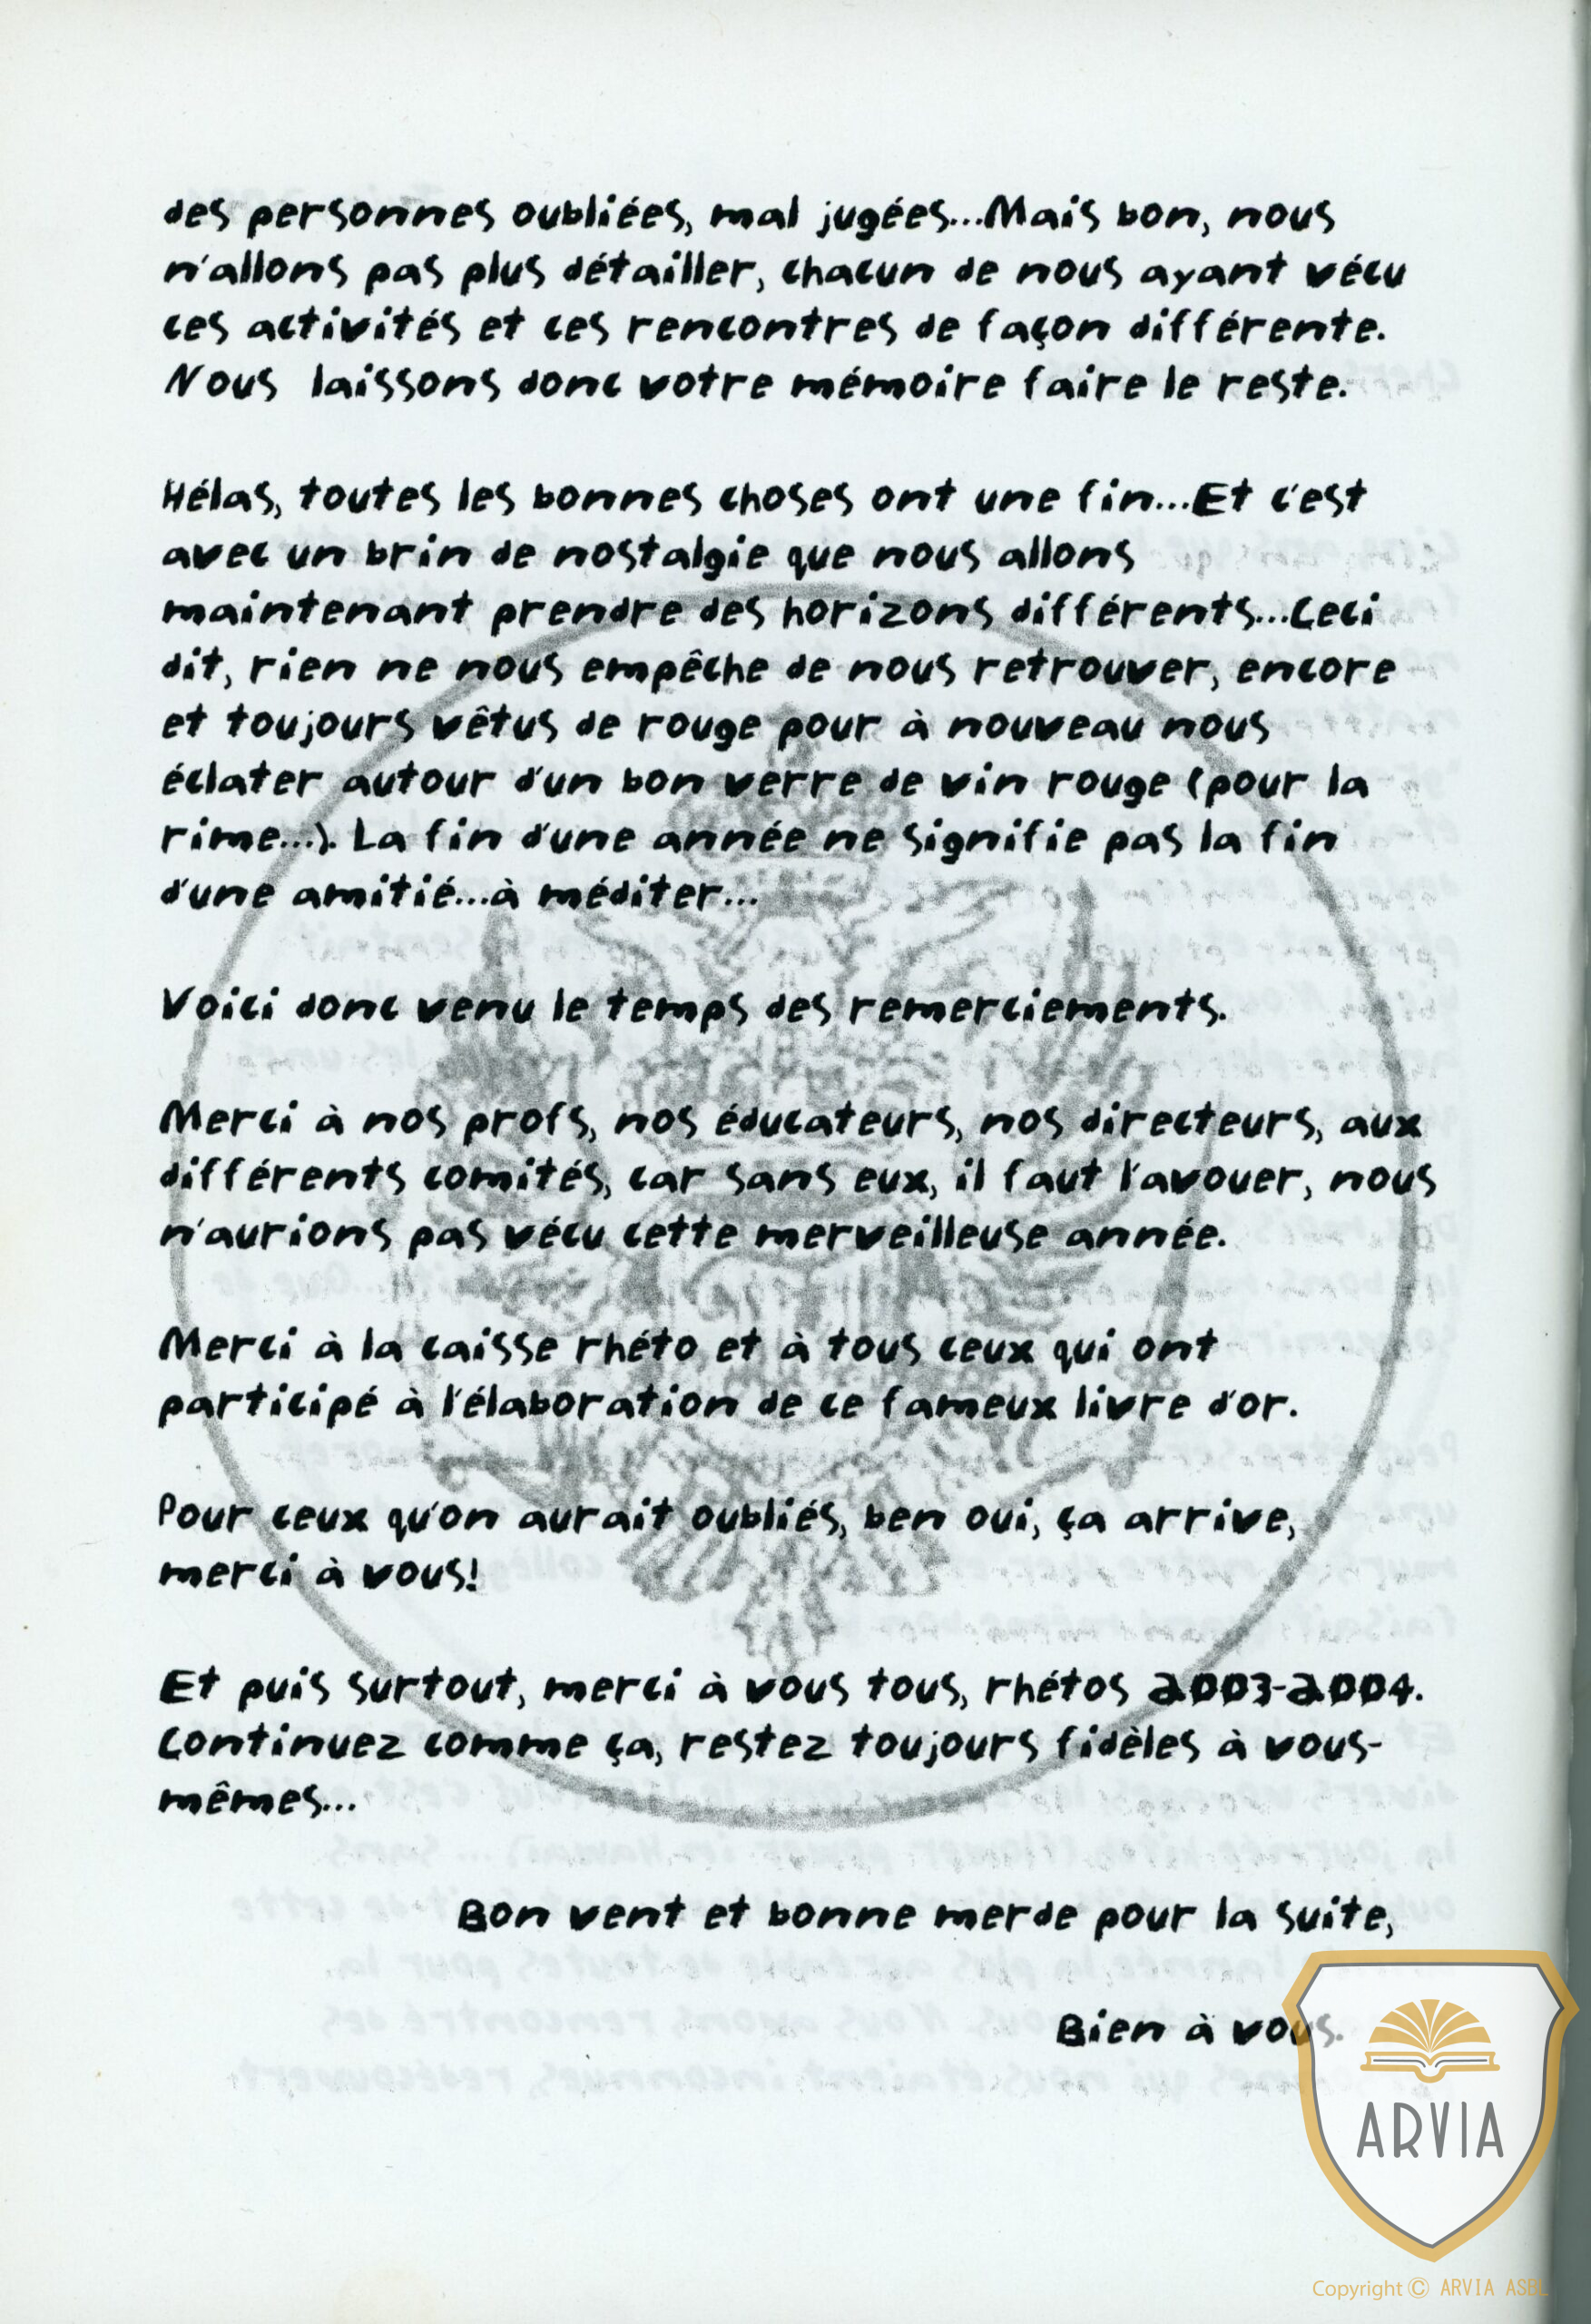 des personnes oubliées, mal jugées...Mais bon, nous
n'allons pas plus détailler, chacun de nous ayant vécu
ces activités et ces rencontres de façon différente.
Nous laissons donc votre mémoire faire le reste.
Hélas, toutes les bonnes choses ont une fin...Et c'est
avec un brin de nostalgie que nous allons
maintenant prendre des horizons différents...Ceci
dit, rien ne nous empêche de nous retrouver, encore
et toujours vêtus de rouge pour à nouveau nous
éclater autour d'un bon verre de vin rouge (pour la
rime...). La fin d'une année ne signifie pas la fin
d'une amitié...à méditer...
Voici donc venu le temps des remerciements.
Merci à nos profs, nos éducateurs, nos directeurs, aux
différents comités, car sans eux, il faut l'avouer, nous
n'aurions pas vécu cette merveilleuse année.
Merci à la caisse rhéto et à tous ceux qui ont
participé à l'élaboration de ce fameux livre d'or.
Pour ceux qu'on aurait oubliés, ben oui, ça arrive,
merci à vous!
Et puis surtout, merci à vous tous, rhétos 2003-2004.
Continuez comme ça, restez toujours fidèles à vous-
mêmes...
Bon vent et bonne merde pour la suite,
Bien à vous.
ARVIA
Copyright © ARVIA ASBL